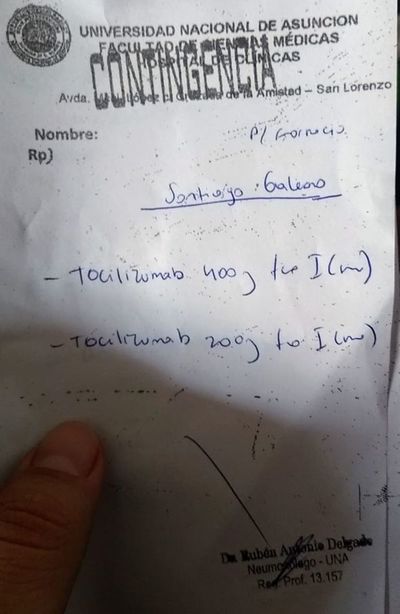 UNIVERSIDAD NACIONAL DE ASUNCION
FACULTAD DE CIENCIAS MÉDICAS
HOSPITAL DE CLINICAS
CONTINGENCIA
Avda. de la Amistad – San Lorenzo
Nombre:
P/ Farmacia
Rp)
Santiago Galeano
- Tocilizumab 400g fco I (un)
- Tocilizumab 200g fco I (un)
Dr. Rubén Antonio Delgado
Neumólogo - UNA
Reg. Prof. 13.157